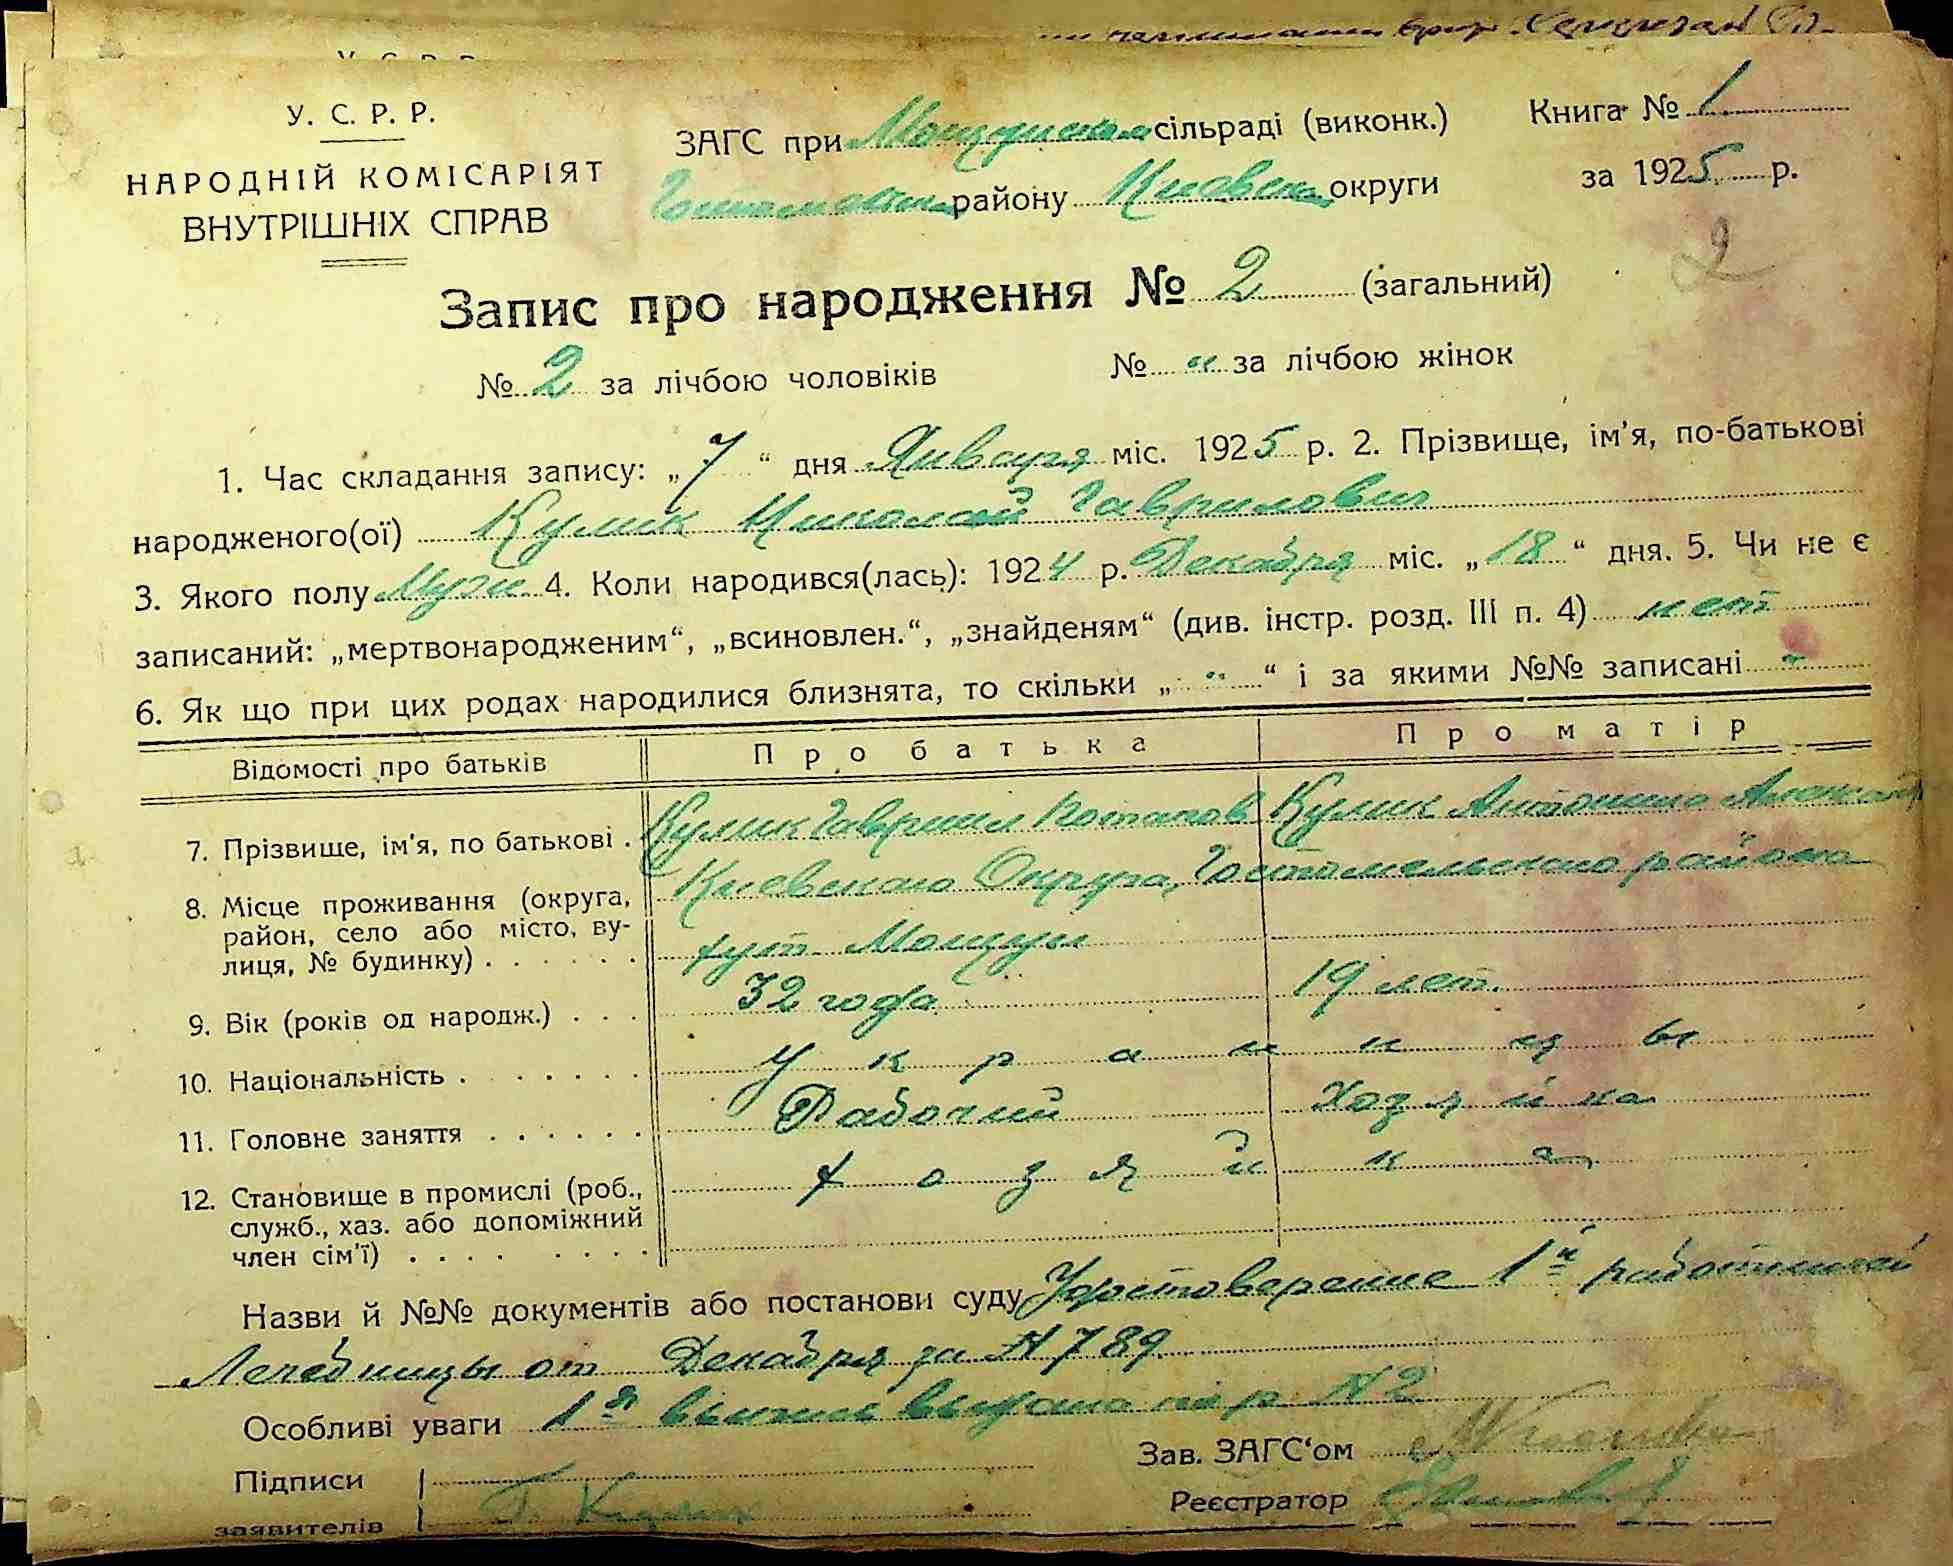 У. С. Р. Р.
НАРОДНІЙ КОМІСАРІЯТ
ВНУТРІШНІХ СПРАВ
ЗАГС при Мощунском сільраді (виконк.)
Гостомельск району Киевск округи
Книга № 1
за 1925 р.
2
Запис про народження № 2 (загальний)
№ 2 за лічбою чоловіків № „ за лічбою жінок
1. Час складання запису: „7“ дня Января міс. 1925 р. 2. Прізвище, ім'я, по-батькові
народженого(ої) Кулик Николай Гаврилович
3. Якого полу Муж 4. Коли народився(лась): 1924 р. Декабря міс. „18“ дня. 5. Чи не є
записаний: „мертвонародженим“, „всиновлен.“, „знайденям“ (див. інстр. розд. III п. 4) нет
6. Як що при цих родах народилися близнята, то скільки „ „ “ і за якими №№ записані -
Відомості про батьків Про батька Про матір
7. Прізвище, ім'я, по батькові . Кулик Гавриил Потапов Кулик Антонина Александр
8. Місце проживання (округа, Киевского Округа, Гостомельского района
район, село або місто, ву-
лиця, № будинку) . . . . . . хут. Мощун
9. Вік (років од народж.) . . . 32 года 19 лет.
10. Національність . . . . . . . украинцы
11. Головне заняття . . . . . . Рабочий Хозяйка
12. Становище в промислі (роб., хозяйка
служб., хаз. або допоміжний
член сім'ї) . . . . . . . .
Назви й №№ документів або постанови суду Удостоверение 1й
Лечебницы от Декабря за № 789
Особливі уваги 1я выпись выдана № 2
Зав. ЗАГС'ом
Підписи
заявителів Г. Кулик
Реєстратор